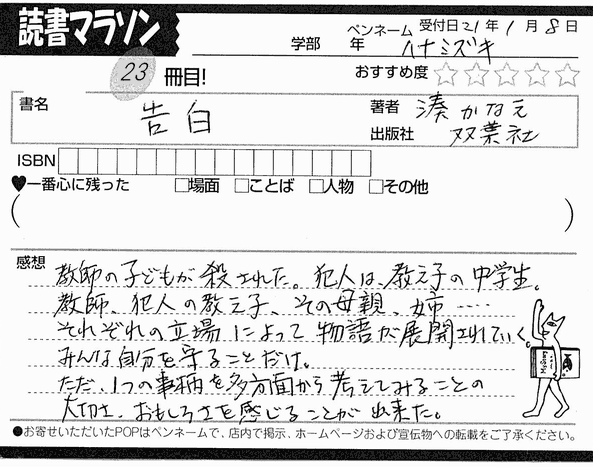 読書マラソン
学部 年 ペンネーム ハナミズキ 受付日 21年 1月 8日
23 冊目!
おすすめ度 ☆☆☆☆☆
書名 告白
著者 湊かなえ
出版社 双葉社
ISBN
♥一番心に残った □場面 □ことば □人物 □その他
( )
感想
教師の子どもが殺された。犯人は、教え子の中学生。
教師、犯人の教え子、その母親、姉‥‥
それぞれの立場によって物語が展開されていく。
みんな自分を守ることだけ。
ただ、1つの事柄を多方面から考えてみることの
大切さ、おもしろさを感じることが出来た。
●お寄せいただいたPOPはペンネームで、店内で掲示、ホームページおよび宣伝物への転載をご了承ください。